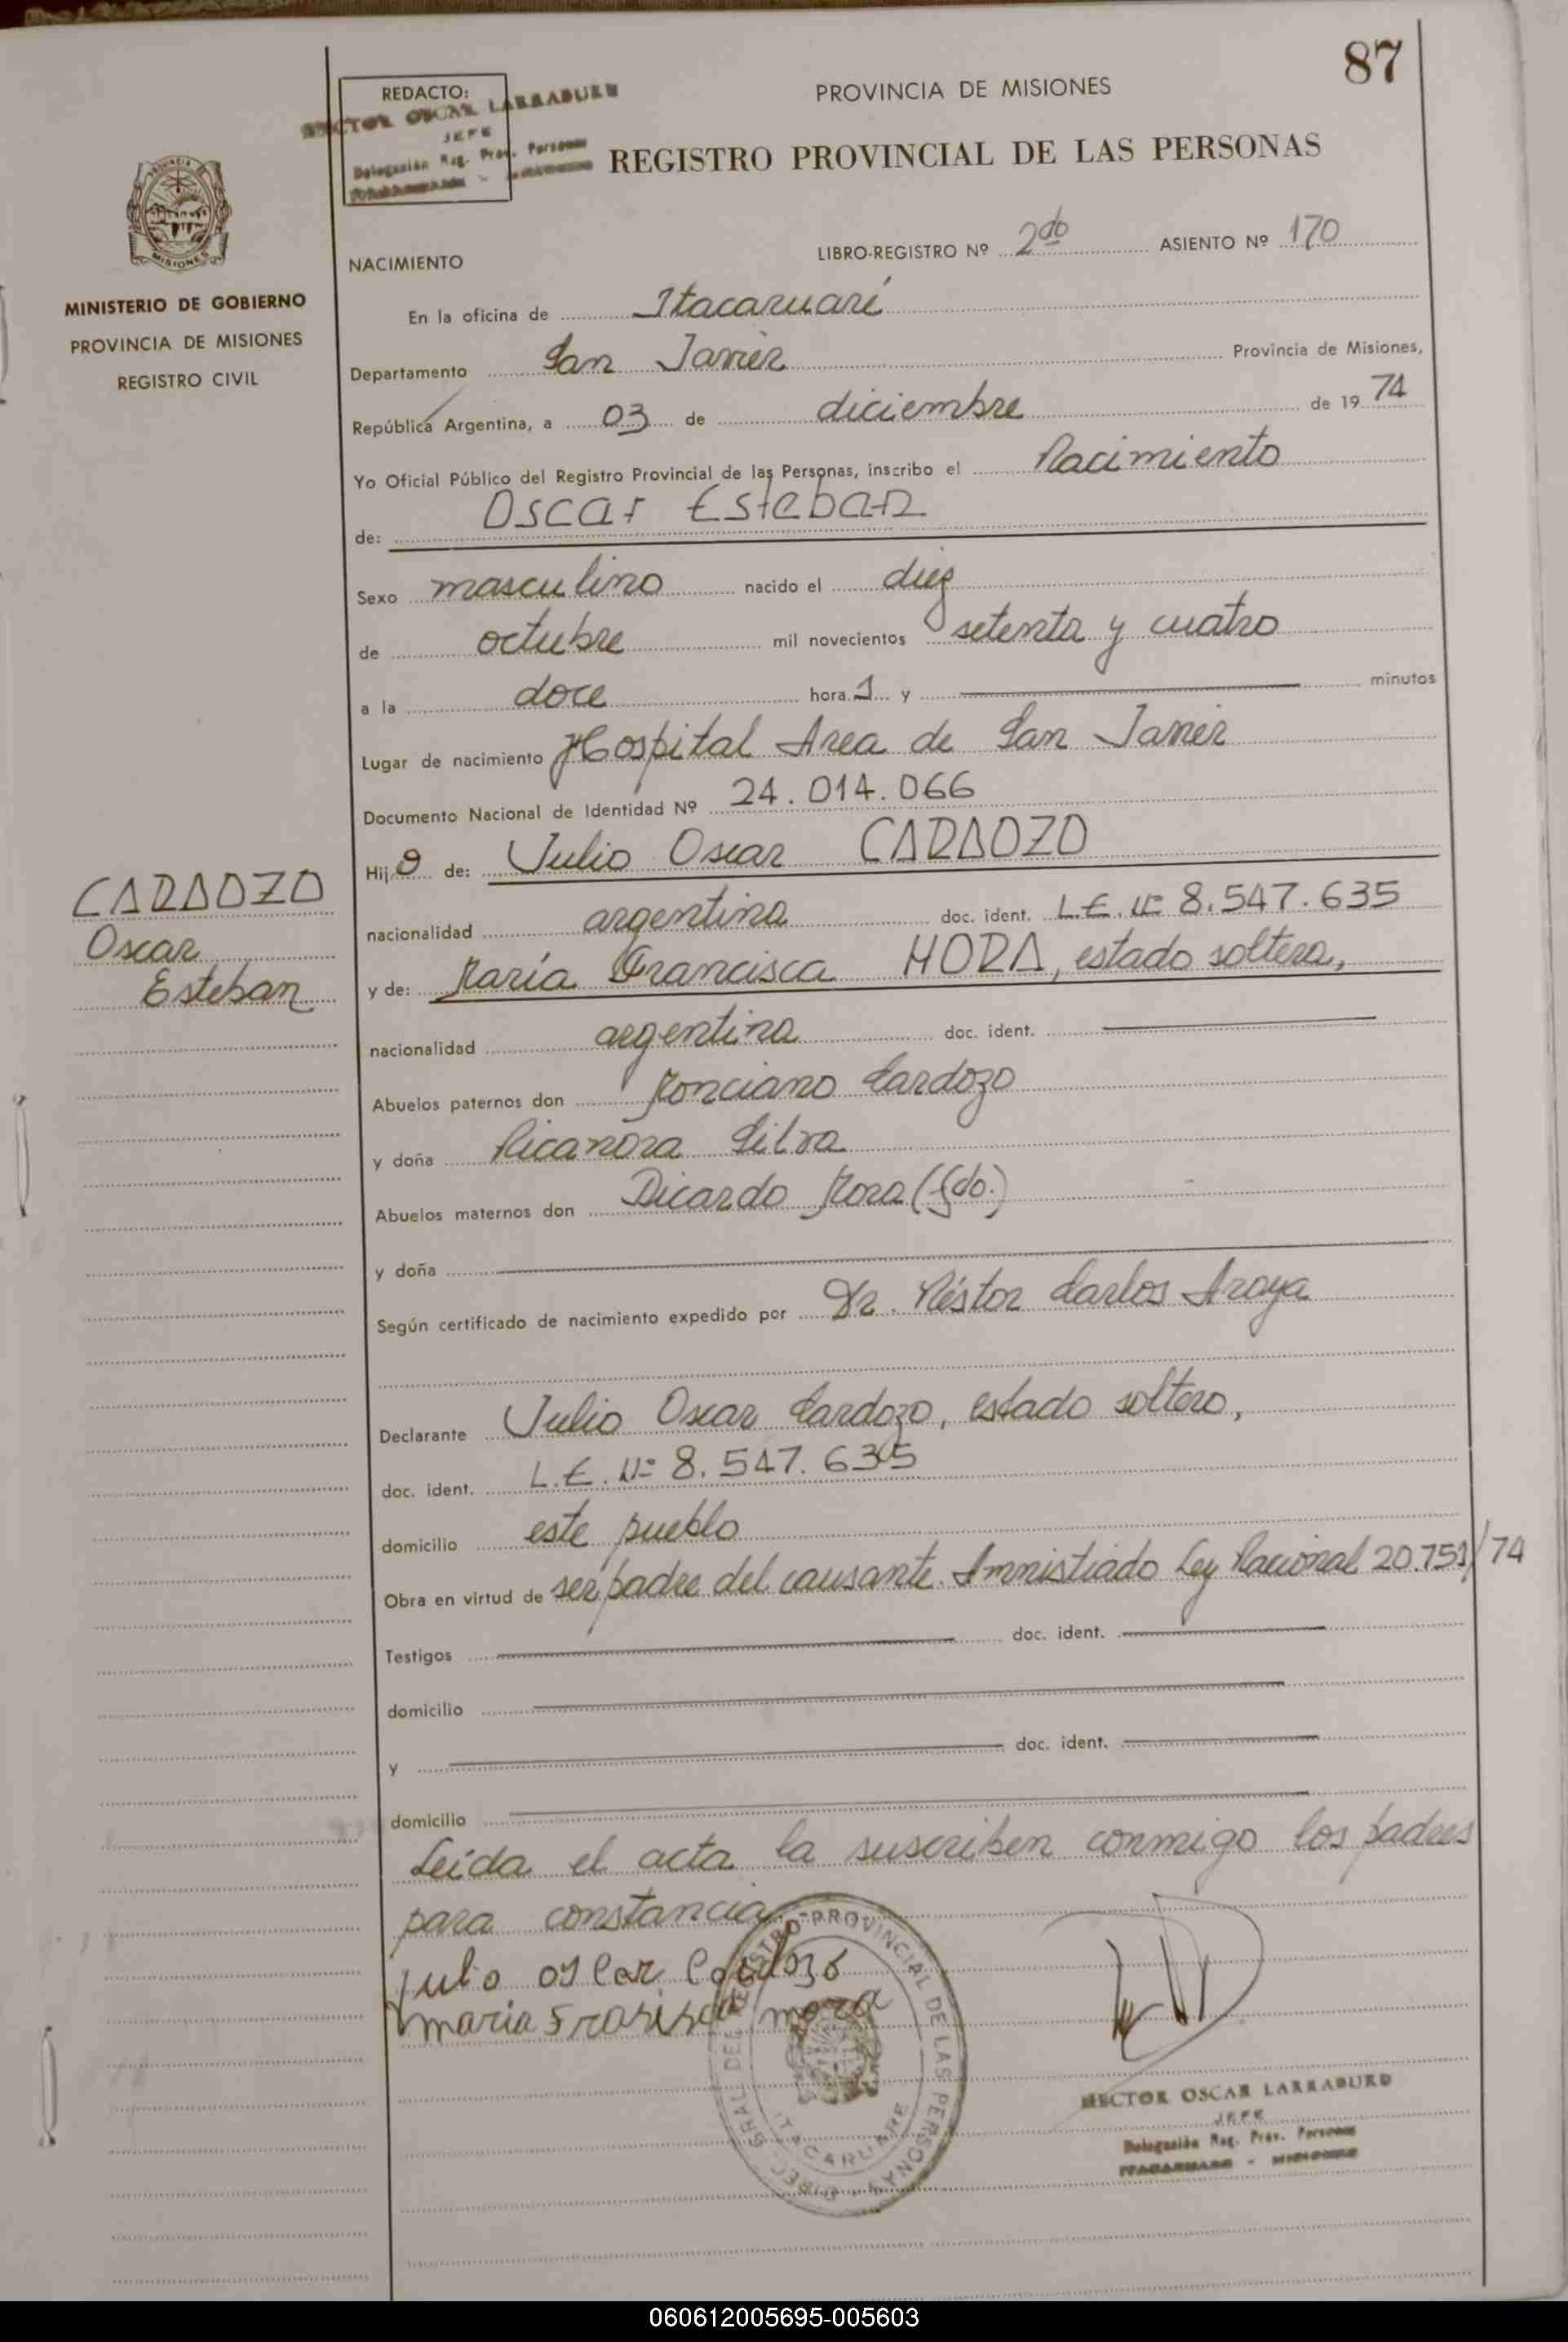 87
REDACTO:
HECTOR OSCAR LARRABURU
JEFE
Delegación Reg. Prov. Personas
PROVINCIA DE MISIONES
REGISTRO PROVINCIAL DE LAS PERSONAS
MISIONES
MINISTERIO DE GOBIERNO
PROVINCIA DE MISIONES
REGISTRO CIVIL
NACIMIENTO
LIBRO-REGISTRO Nº 2do ASIENTO Nº 170
En la oficina de Itacaruaré
Departamento San Javier Provincia de Misiones,
República Argentina, a 03 de diciembre de 19 74
Yo Oficial Público del Registro Provincial de las Personas, inscribo el Nacimiento
de: Oscar Esteban
Sexo masculino nacido el diez
de octubre mil novecientos setenta y cuatro
a la doce hora 1 y minutos
Lugar de nacimiento Hospital Area de San Javier
Documento Nacional de Identidad Nº 24.014.066
Hijo de: Julio Oscar CARDOZO
CARDOZO
Oscar
Esteban
nacionalidad argentina doc. ident. L.E. Nº 8.547.635
y de: María Francisca MORA, estado soltera,
nacionalidad argentina doc. ident.
Abuelos paternos don Ponciano Cardozo
y doña Nicanora Silva
Abuelos maternos don Ricardo Mora (fdo.)
y doña
Según certificado de nacimiento expedido por Dr. Néstor Carlos Araya
Declarante Julio Oscar Cardozo, estado soltero,
doc. ident. L.E. Nº 8.547.635
domicilio este pueblo
Obra en virtud de ser padre del causante. Amnistiado Ley Nacional 20.751/74
Testigos doc. ident.
domicilio
y doc. ident.
domicilio
Leída el acta la suscriben conmigo los padres
para constancia
julio oscar Cardozo
maria Frasisca mora
DIREC. GRAL. DEL REGISTRO PROVINCIAL DE LAS PERSONAS
ITACARUARE
HECTOR OSCAR LARRABURU
JEFE
Delegación Reg. Prov. Personas
ITACARUARE - MISIONES
060612005695-005603